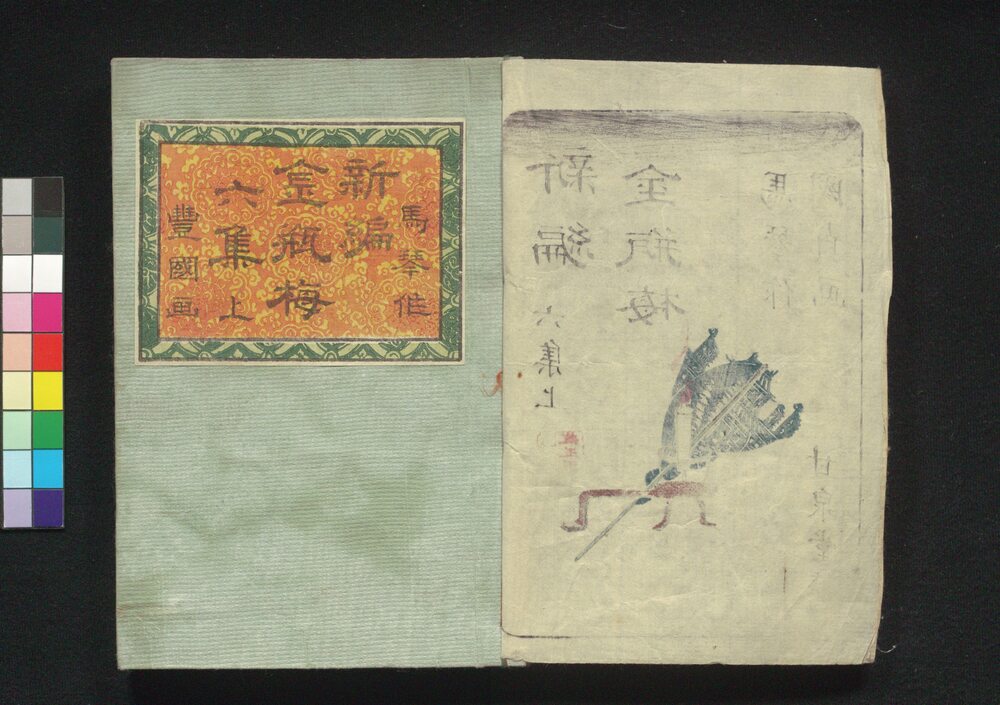 馬琴作
新編
金瓶梅
六集上
豐國画
新編
金瓶梅
六集上
馬琴作
國貞画
甘泉堂